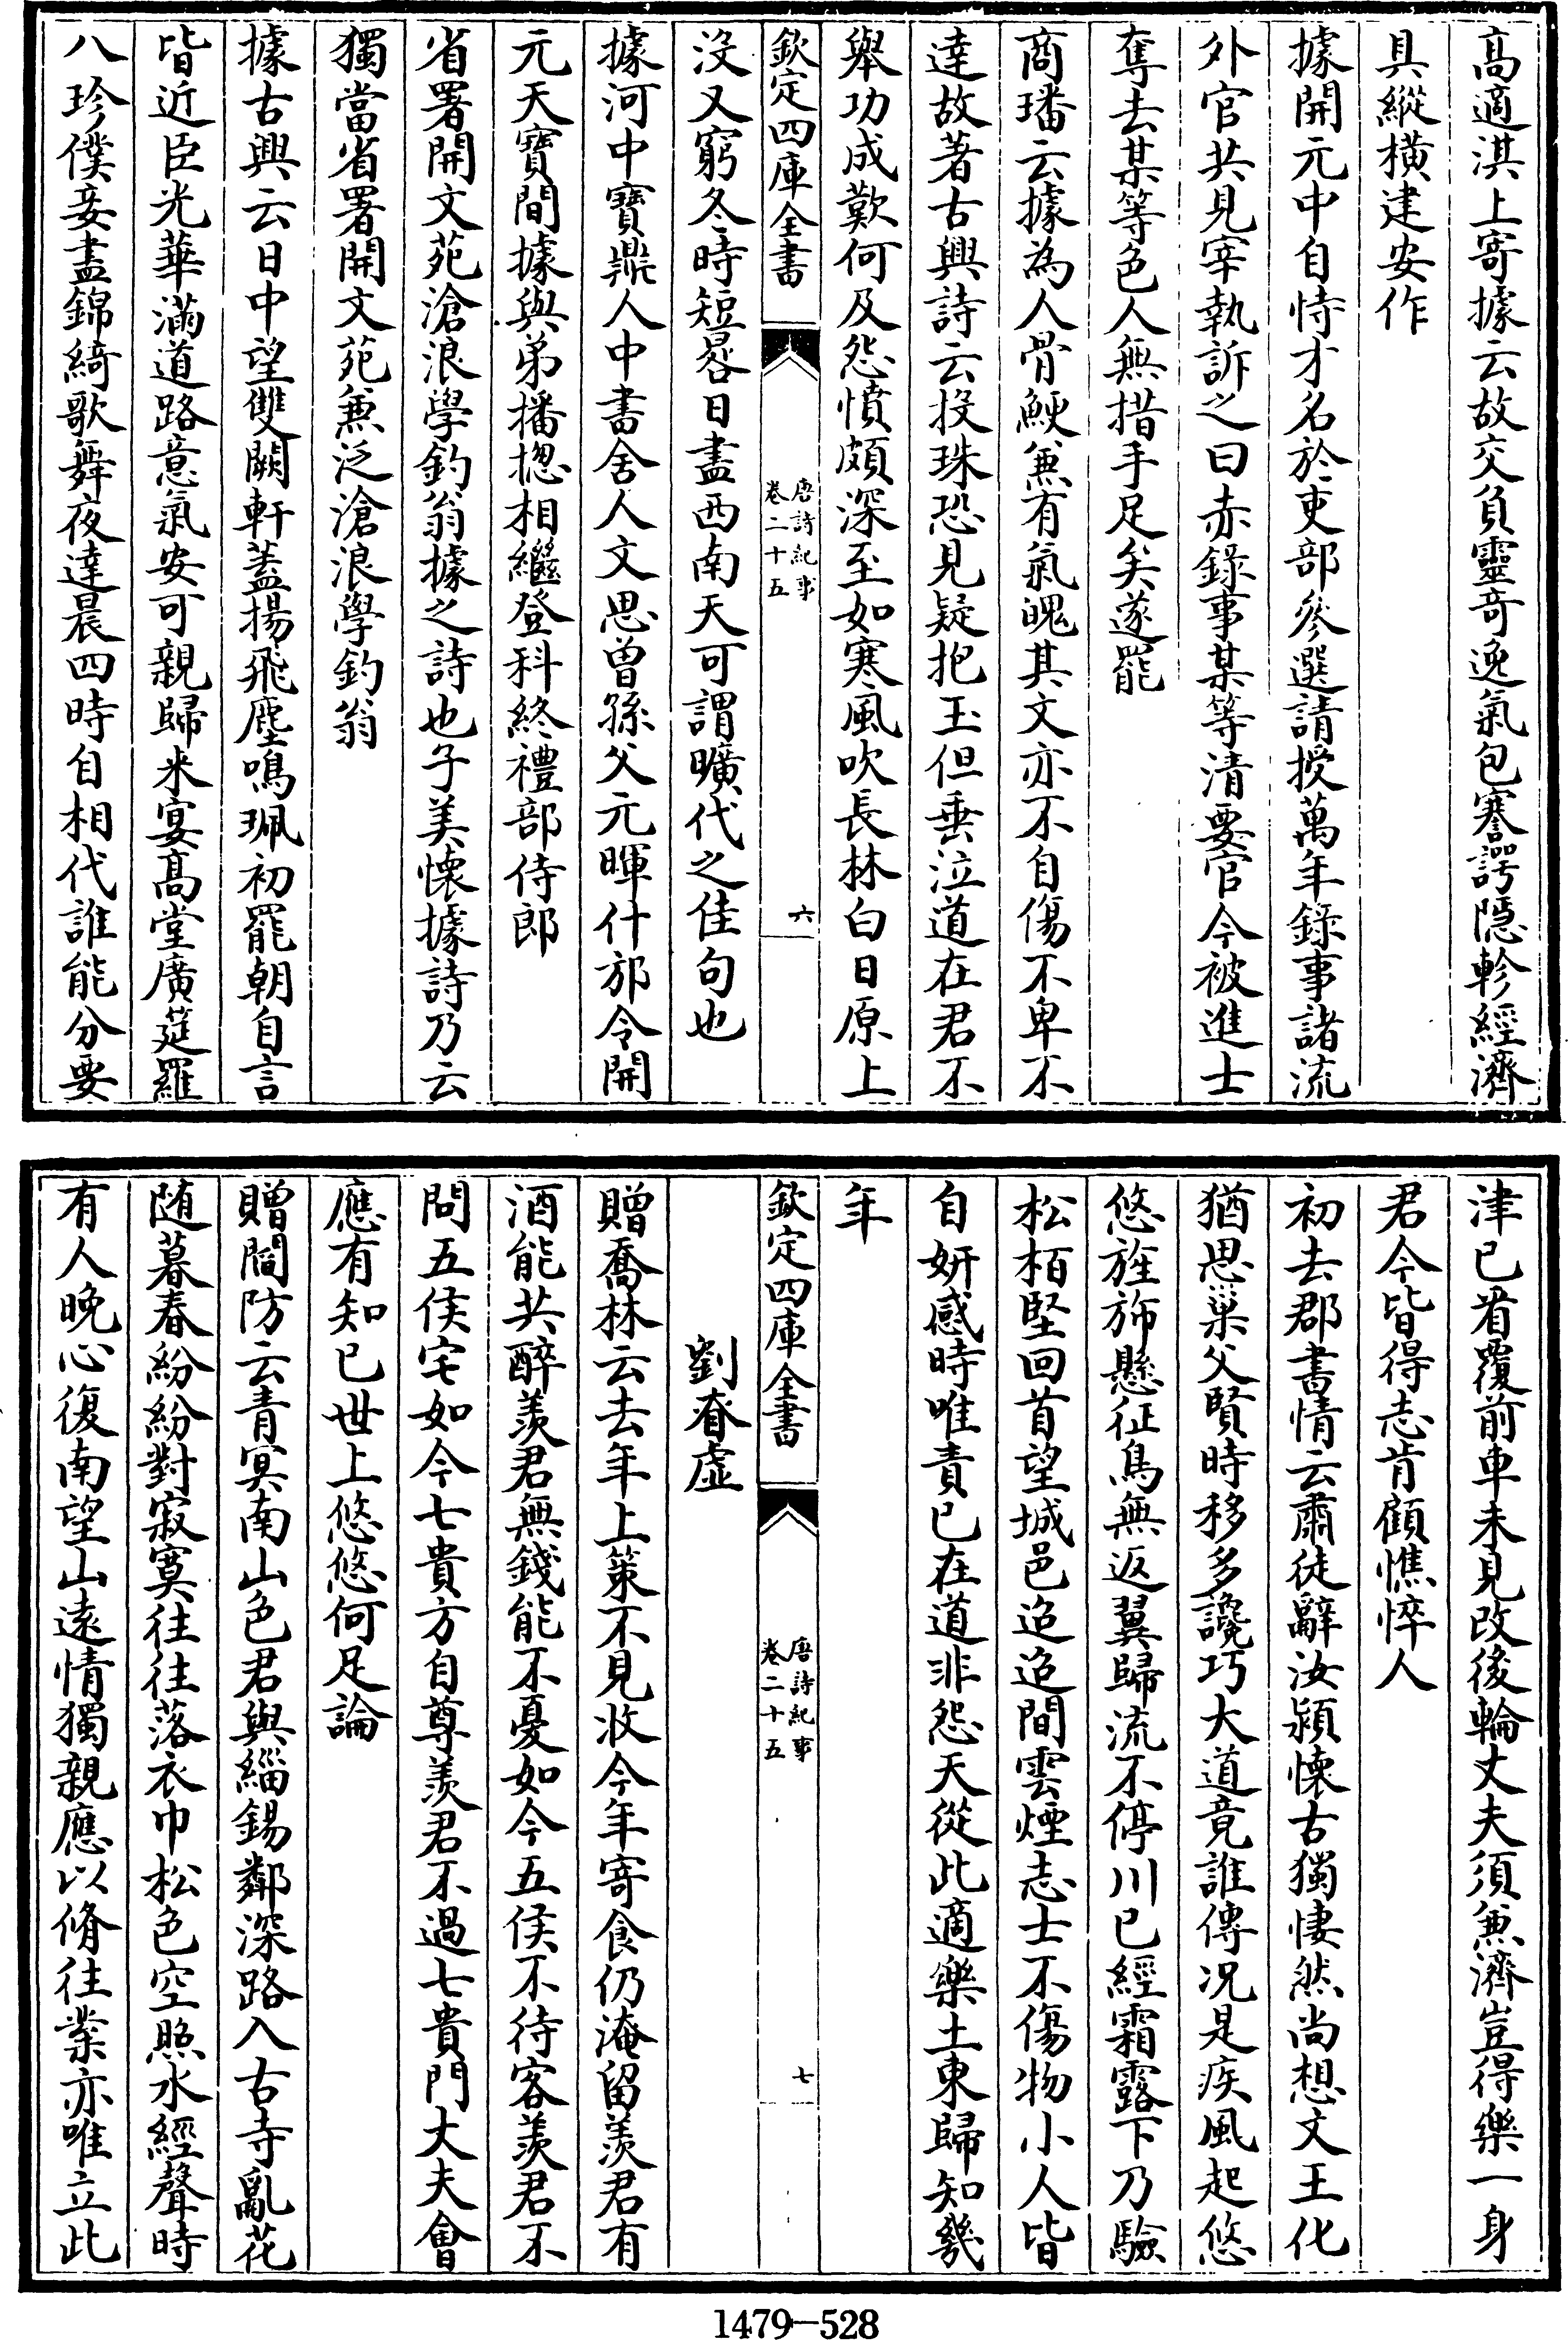 高適淇上寄據云故交負靈竒逸氣包謇諤隱軫經濟
具縱横建安作
據開元中自恃才名於吏部參選請授萬年錄事諸流
外官共見宰執訴之曰赤錄事某等清要官今被進士
奪去某等色人無措手足矣遂罷
商璠云據為人骨鯁兼有氣魄其文亦不自傷不卑不
達故著古興詩云投珠恐見疑抱玉但垂泣道在君不
舉功成歎何及怨憤頗深至如寒風吹長林白日原上
欽定四庫全書
唐詩紀事
卷二十五
六
沒又窮冬時短晷日盡西南天可謂曠代之佳句也
據河中寶鼎人中書舍人文思曾孫父元暉什邡令開
元天寶間據與弟播揔相繼登科終禮部侍郎
省署開文苑滄浪學釣翁據之詩也子美懷據詩乃云
獨當省署開文苑兼泛滄浪學釣翁
據古興云日中望雙闕軒葢揚飛塵鳴珮初罷朝自言
皆近臣光華滿道路意氣安可親歸来宴高堂廣筵羅
八珍僕妾盡錦綺歌舞夜達晨四時自相代誰能分要
津已看覆前車未見改後輪丈夫須兼濟豈得樂一身
君今皆得志肯顧憔悴人
初去郡書情云肅徒辭汝潁懷古獨悽然尚想文王化
猶思巢父賢時移多讒巧大道竟誰傳况是疾風起悠
悠旌斾懸征鳥無返翼歸流不停川已經霜露下乃驗
松栢堅回首望城邑迢迢間雲煙志士不傷物小人皆
自妍感時唯責已在道非怨天從此適樂土東歸知幾
年
欽定四庫全書
唐詩紀事
卷二十五
七
劉眘虛
贈喬林云去年上策不見收今年寄食仍淹留羨君有
酒能共醉羨君無錢能不憂如今五侯不待客羨君不
問五侯宅如今七貴方自尊羨君不過七貴門丈夫會
應有知已世上悠悠何足論
贈閻防云青冥南山色君與緇錫鄰深路入古寺亂花
随暮春紛紛對寂寞往往落衣巾松色空照水經聲時
有人晚心復南望山遠情獨親應以脩往業亦唯立此
1479-528